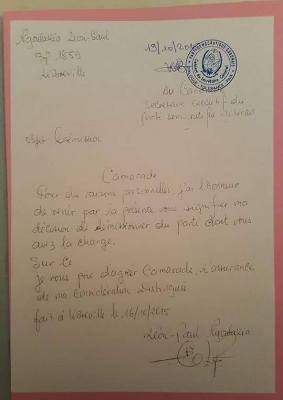 Ngoulakia Léon-Paul
BP 1859
Libreville
19/10/2015
PARTI DEMOCRATIQUE GABONAIS
Au Camarade
Secrétaire exécutif du
Parti Démocratique Gabonais
Objet: Démission
Camarade
Pour des raisons personnelles j'ai l'honneur
de venir par la présente vous signifier ma
décision de démissionner du parti dont vous
avez la charge.
Sur ce
je vous prie d'agréer Camarade, l'assurance
de ma considération distinguée
fait à Libreville le 16/10/2015
Léon-Paul Ngoulakia